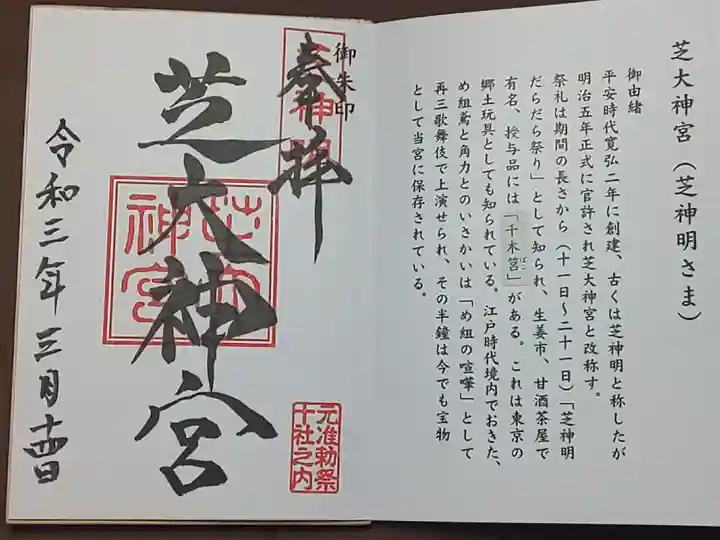 芝大神宮（芝神明さま）
御由緒
平安時代寛弘二年に創建、古くは芝神明と称したが
明治五年正式に官許され芝大神宮と改称す。
祭礼は期間の長さから（十一日～二十一日）「芝神明
だらだら祭り」として知られ、生姜市、甘酒茶屋で
有名、授与品には「千木筥」がある。これは東京の
郷土玩具としても知られている。江戸時代境内でおきた、
め組鳶と角力とのいさかいは「め組の喧嘩」として
再三歌舞伎で上演せられ、その半鐘は今でも宝物
として当宮に保存されている。
御朱印
奉拝
芝大神宮
芝大
神宮
元准勅祭
十社之内
令和三年三月